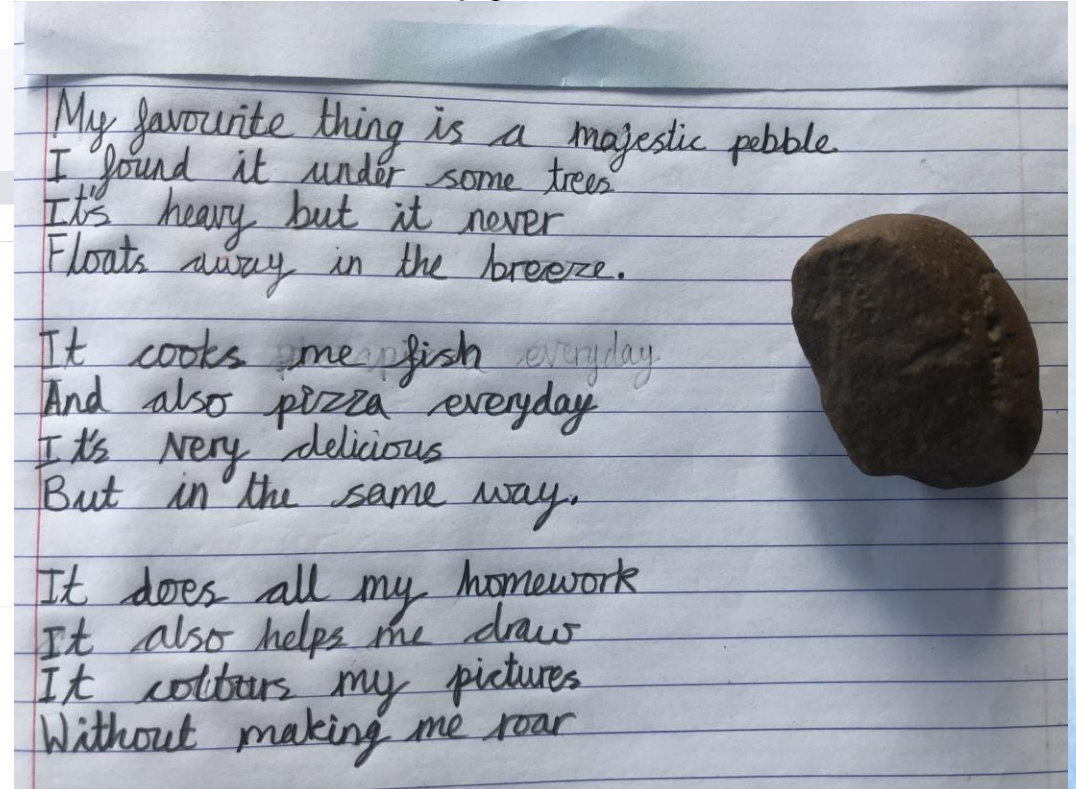 My favourite thing is a majestic pebble.
I found it under some trees
It's heavy but it never
Floats away in the breeze.
It cooks me fish everyday
And also pizza everyday
It's very delicious
But in the same way.
It does all my homework
It also helps me draw
It colours my pictures
Without making me roar